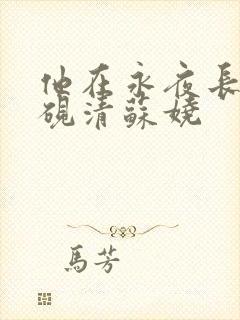 他在永夜長
硯清蘇嬈
馬芳